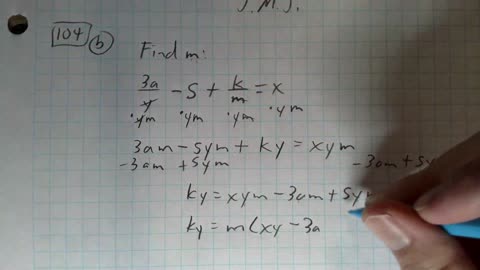 J.M.J.
104 b
Find m:
3a/y - 5 + k/m = x
·ym ·ym ·ym ·ym
3am - 5ym + ky = xym
-3am +5ym -3am + 5y
ky = xym - 3am + 5y
ky = m(xy - 3a